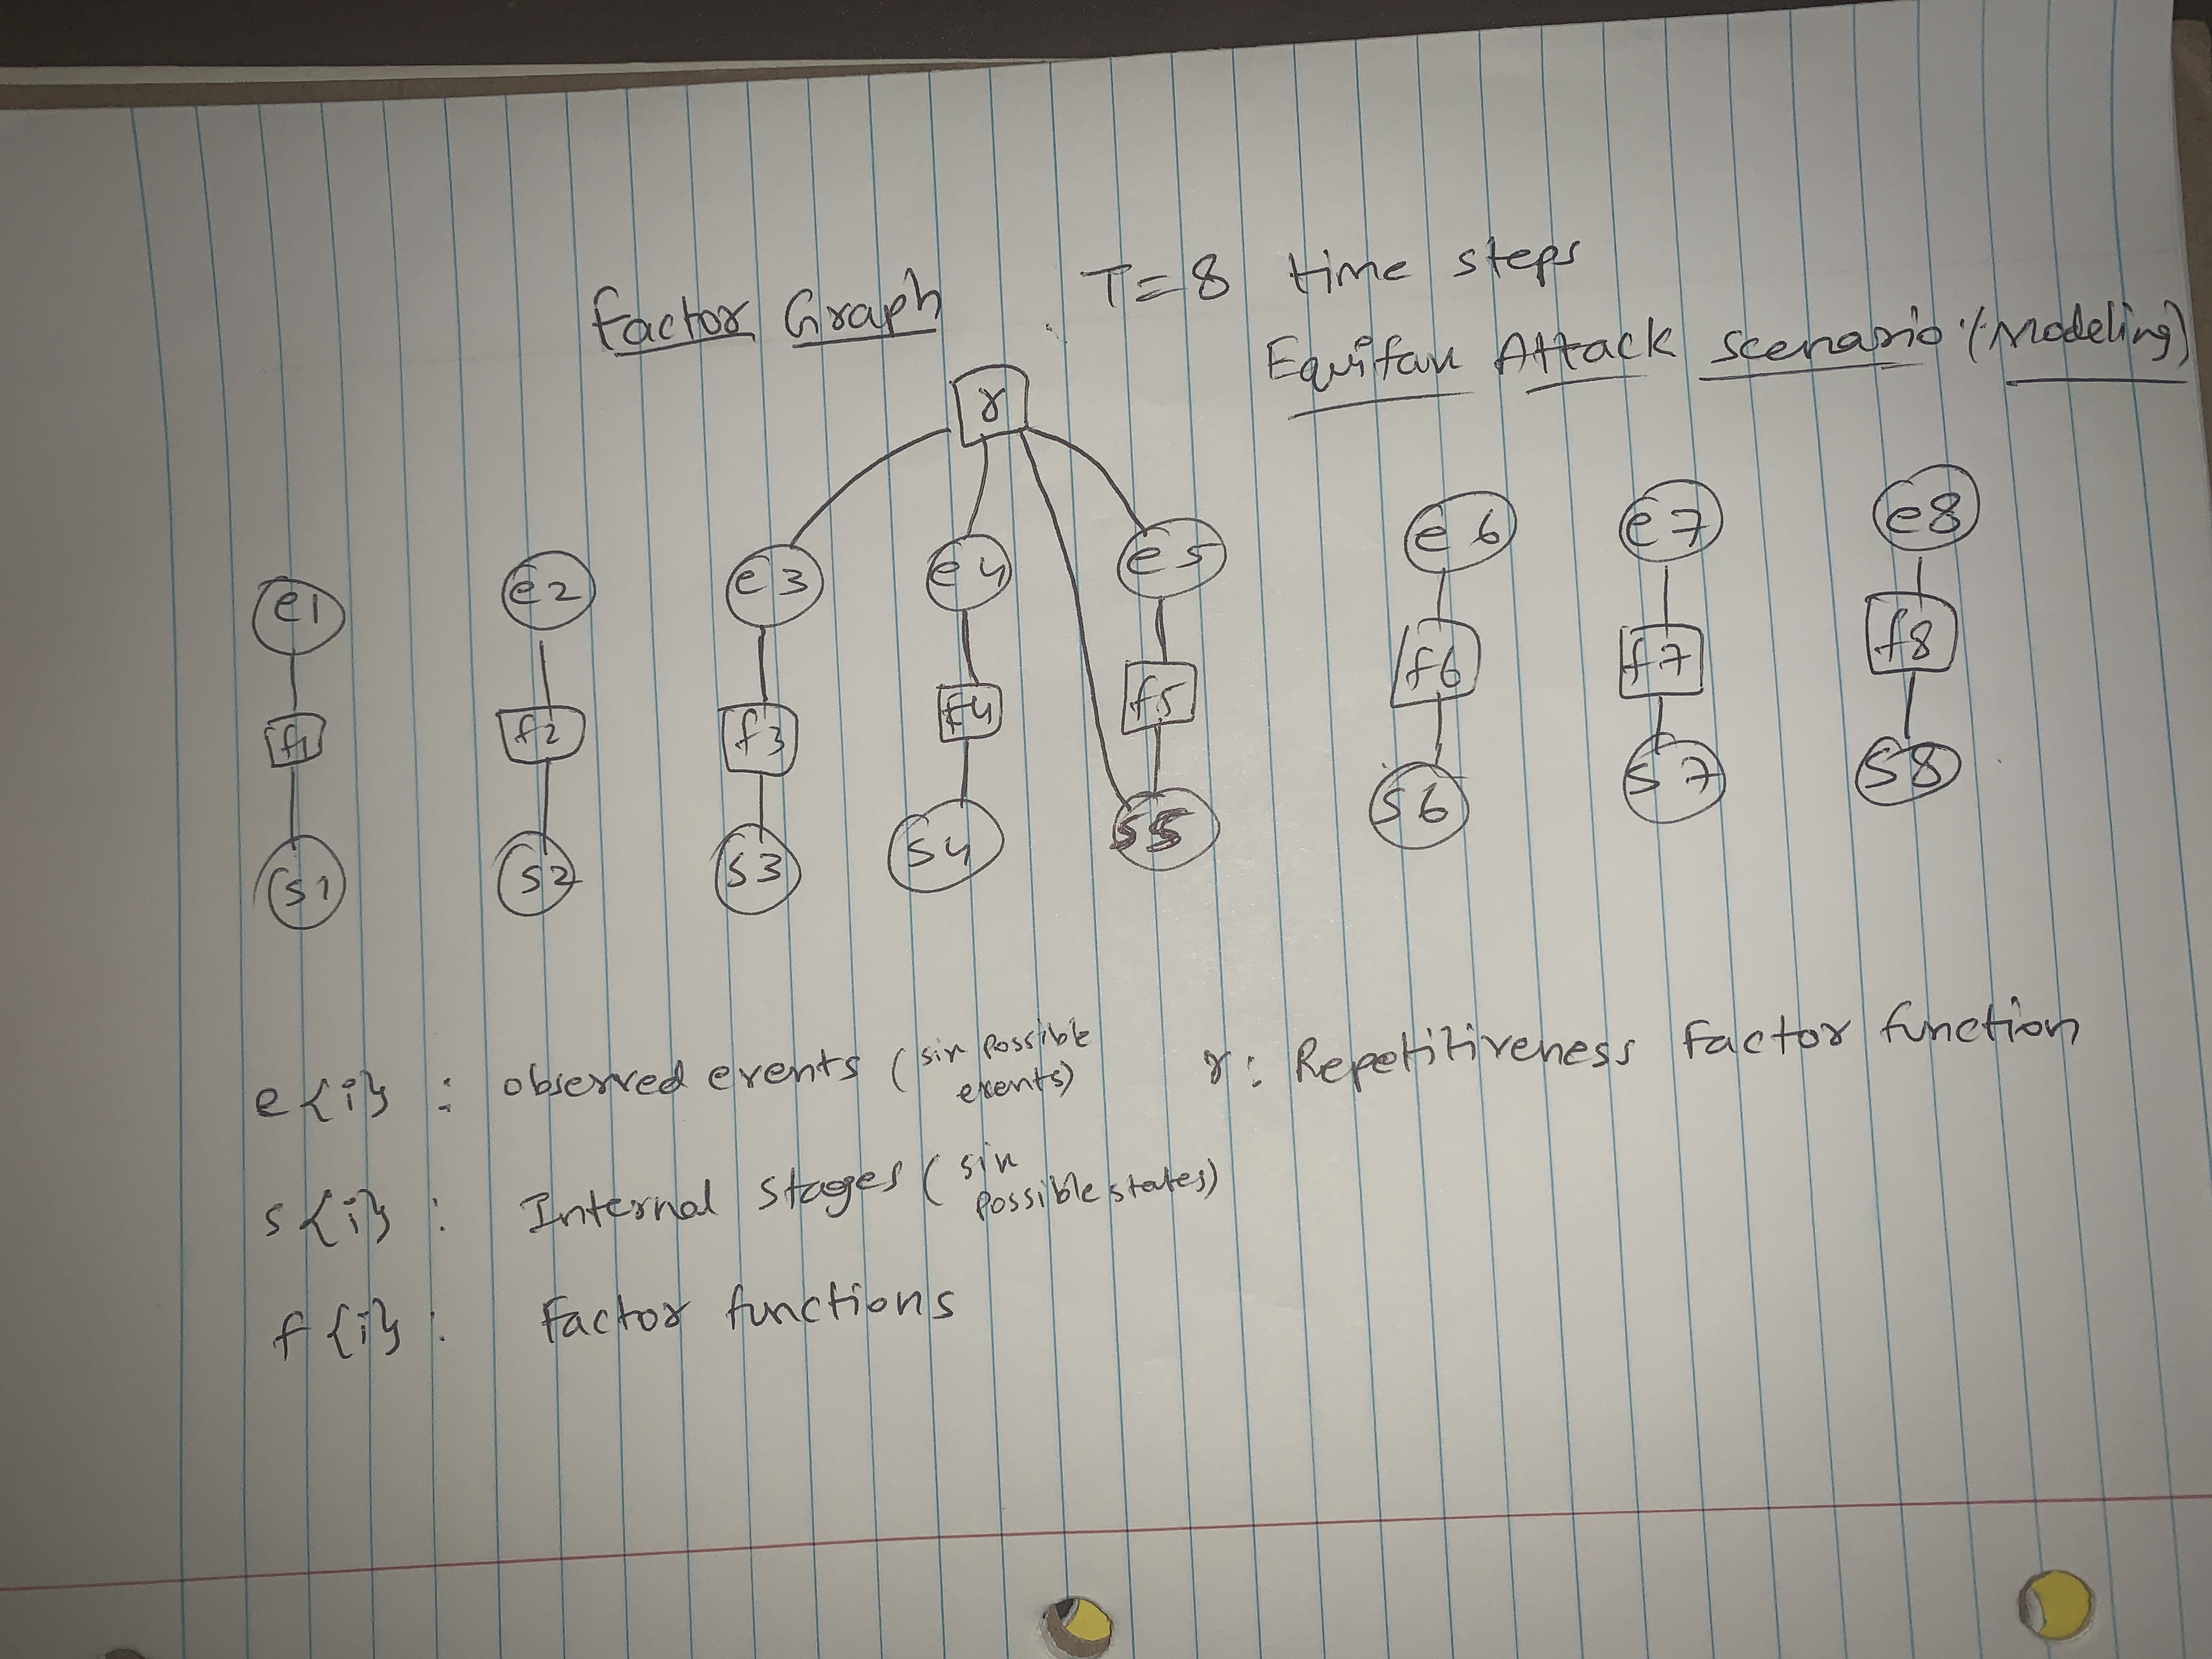 Factor Graph T=8 time steps
Equifax Attack scenario (Modeling)
r
e1 e2 e3 e4 e5 e6 e7 e8
f1 f2 f3 f4 f5 f6 f7 f8
s1 s2 s3 s4 s5 s6 s7 s8
e{i} : observed events (six possible
events)
r: Repetitiveness Factor function
s{i} : Internal stages (six
possible states)
f{i} : Factor functions